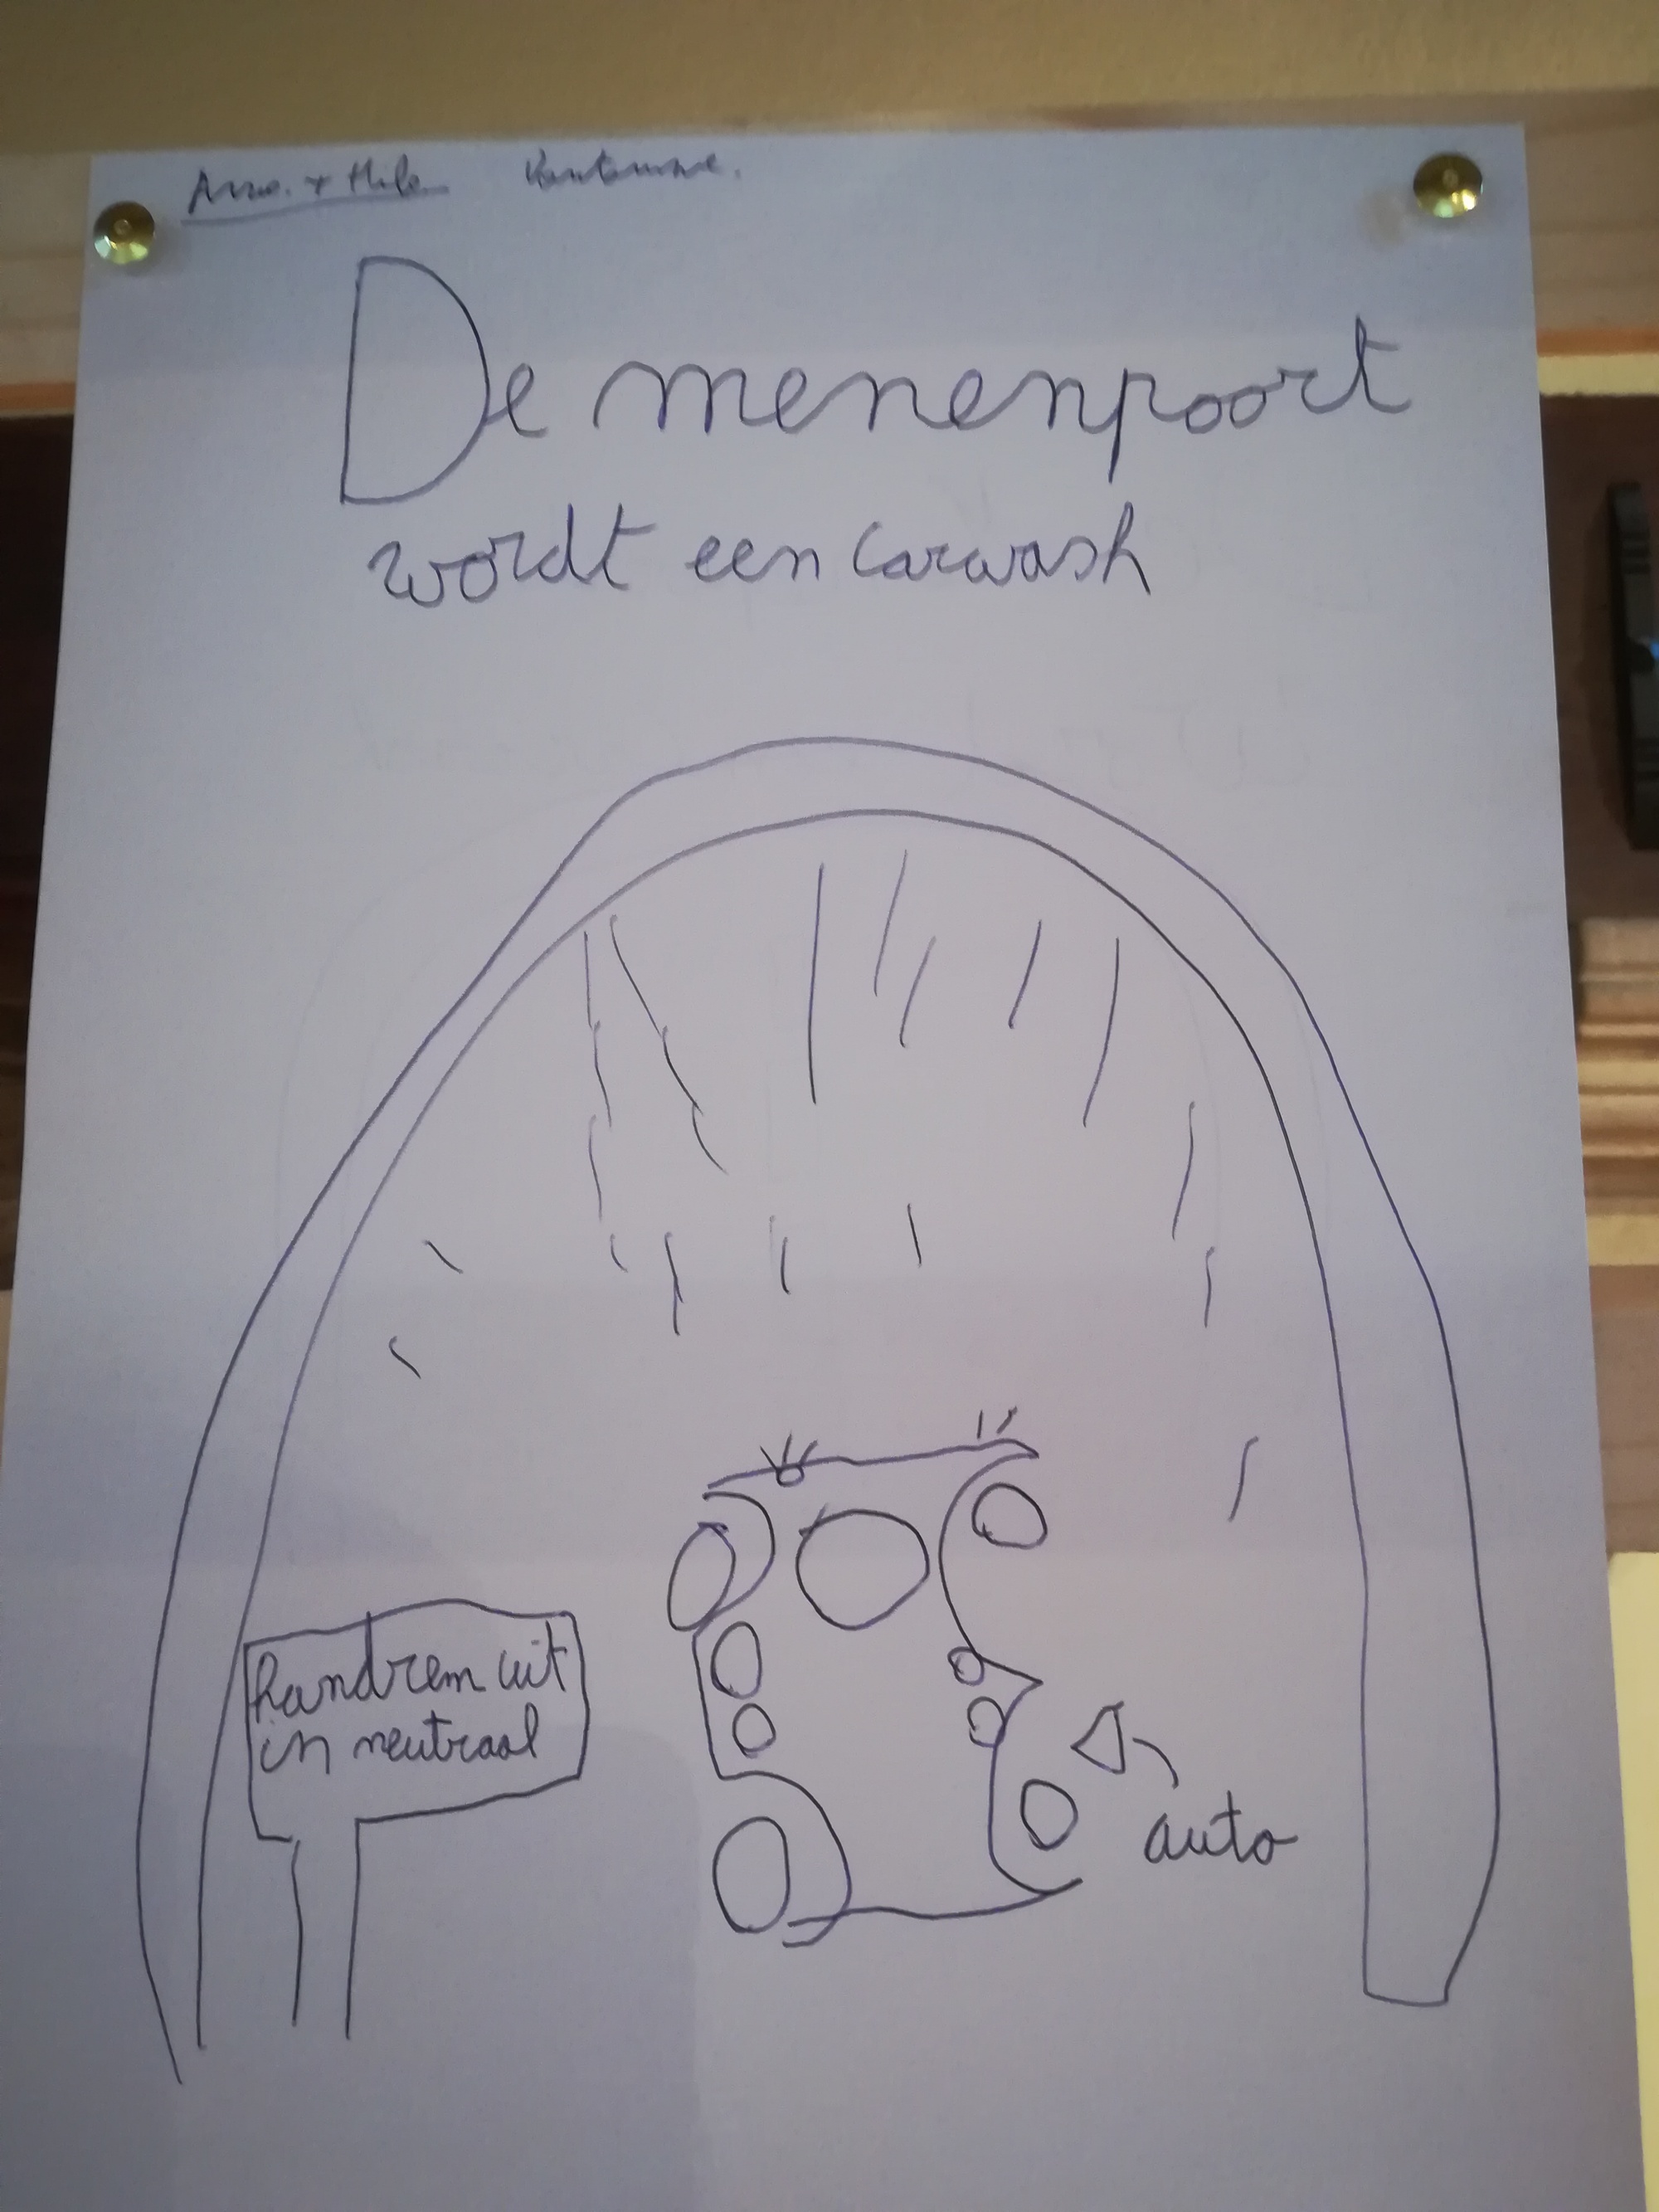 De menenpoort
wordt een carwash
handrem uit
in neutraal
auto